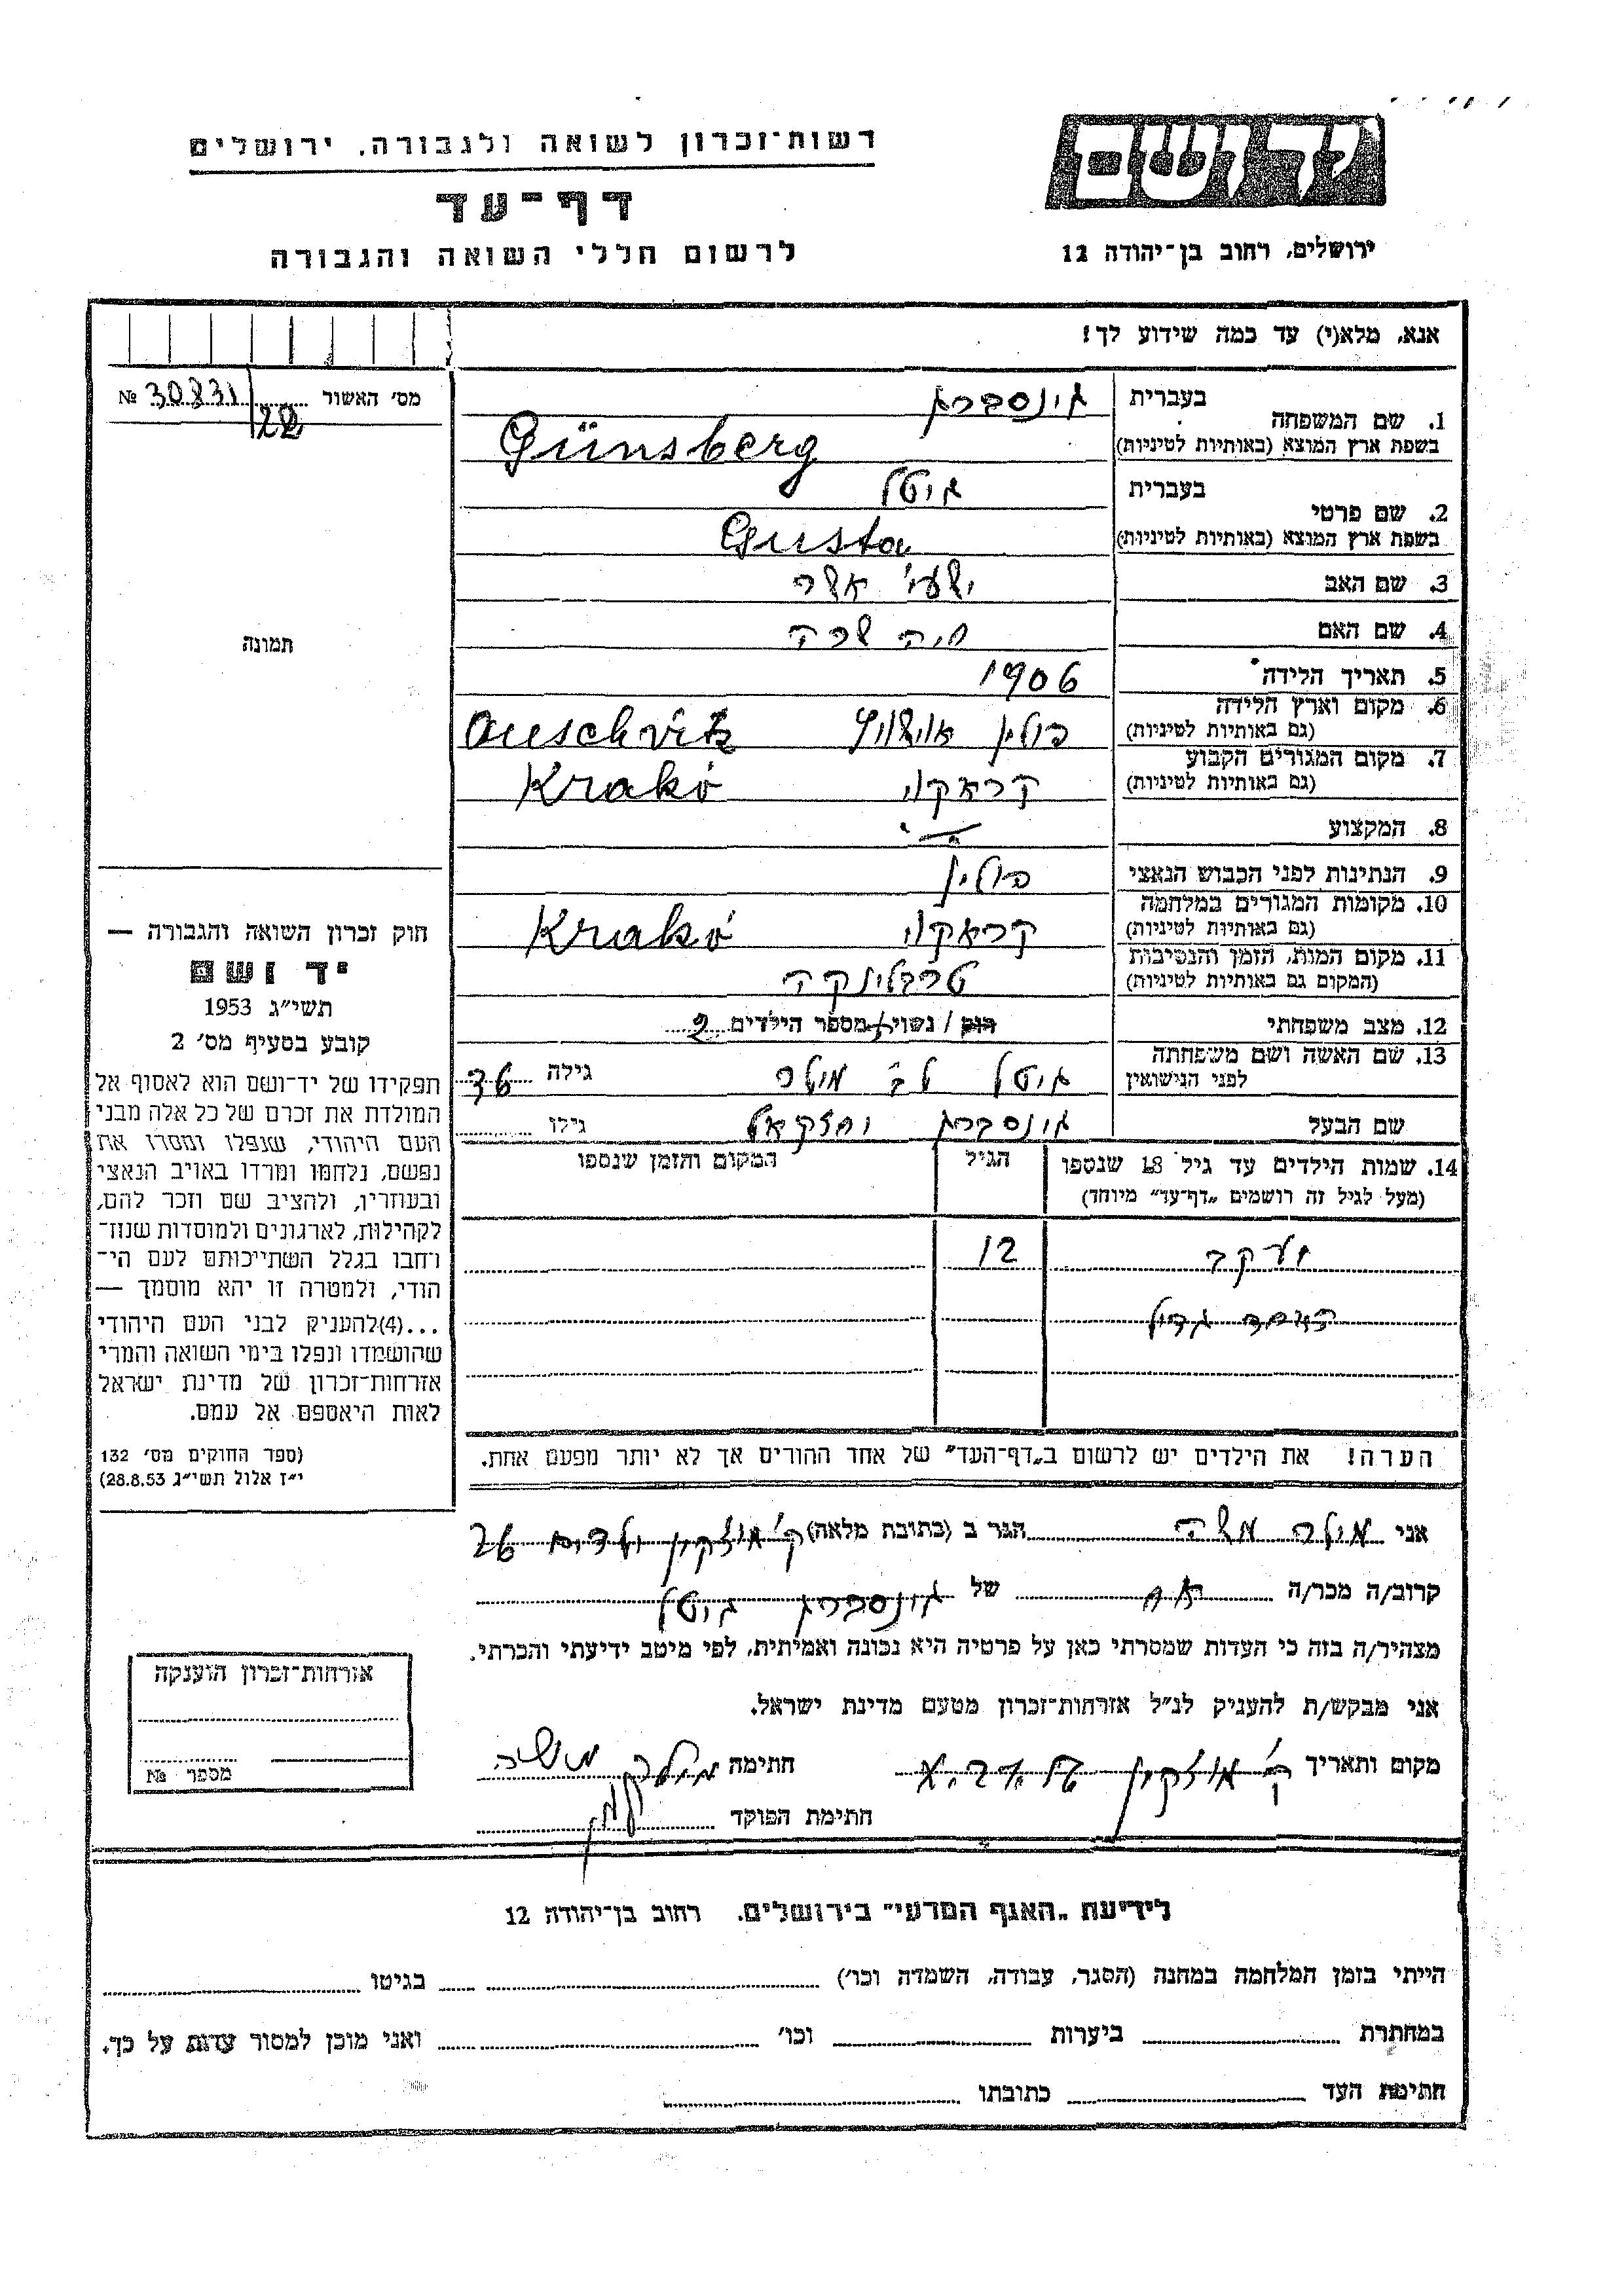 יד ושם
ירושלים, רחוב בן־יהודה 12
רשות־זכרון לשואה ולגבורה, ירושלים
דף־עד
לרשום חללי השואה והגבורה
אנא, מלא(י) עד כמה שידוע לך!
מס׳ האשור № 30831/22
1. שם המשפחה בעברית גינסברג
בשפת ארץ המוצא (באותיות לטיניות) Günsberg
2. שם פרטי בעברית גיטל
בשפת ארץ המוצא (באותיות לטיניות) Gusta
3. שם האב ישעי׳ אשר
4. שם האם חיה שרה
5. תאריך הלידה 1906
6. מקום וארץ הלידה (גם באותיות לטיניות) פולין אושוויץ Auschvitz
7. מקום המגורים הקבוע (גם באותיות לטיניות) קראקוי Krakó
8. המקצוע
9. הנתינות לפני הכבוש הנאצי פולין
10. מקומות המגורים במלחמה (גם באותיות לטיניות) קראקוי Krakó
11. מקום המות, הזמן והנסיבות (המקום גם באותיות לטיניות) טרבלינקה
12. מצב משפחתי רוק / נשוי / מספר הילדים 2
13. שם האשה ושם משפחתה לפני הנישואין גיטל לב׳ מולר גילה
שם הבעל גינסברג יחזקאל גילו
14. שמות הילדים עד גיל 18 שנספו
(מעל לגיל זה רושמים „דף־עד״ מיוחד)
הגיל
המקום והזמן שנספו
יעקב 12
הערה! את הילדים יש לרשום ב„דף־העד״ של אחד ההורים אך לא יותר מפעם אחת.
תמונה
חוק זכרון השואה והגבורה —
יד ושם
תשי״ג 1953
קובע בסעיף מס׳ 2
תפקידו של יד־ושם הוא לאסוף אל
המולדת את זכרם של כל אלה מבני
העם היהודי, שנפלו ומסרו את
נפשם, נלחמו ומרדו באויב הנאצי
ובעוזריו, ולהציב שם וזכר להם,
לקהילות, לארגונים ולמוסדות שנח־
רבו בגלל השתייכותם לעם הי־
הודי, ולמטרה זו יהא מוסמך —
...(4)להעניק לבני העם היהודי
שהושמדו ונפלו בימי השואה והמרי
אזרחות־זכרון של מדינת ישראל
לאות היאספם אל עמם.
(ספר החוקים מס׳ 132
י״ז אלול תשי״ג 28.8.53)
אני מולר משה הגר ב (כתובת מלאה)
קרוב/ה מכר/ה אח של גינסברג גיטל
מצהיר/ה בזה כי העדות שמסרתי כאן על פרטיה היא נכונה ואמיתית, לפי מיטב ידיעתי והכרתי.
אני מבקש/ת להעניק לנ״ל אזרחות־זכרון מטעם מדינת ישראל.
מקום ותאריך חתימה מולר משה
חתימת הפוקד
אזרחות־זכרון הוענקה
מספר №
לידיעת „האגף המדעי״ בירושלים. רחוב בן־יהודה 12
הייתי בזמן המלחמה במחנה (הסגר, עבודה, השמדה וכו׳) בגיטו
במחתרת ביערות וכו׳ ואני מוכן למסור עדות על כך.
חתימת העד כתובתו